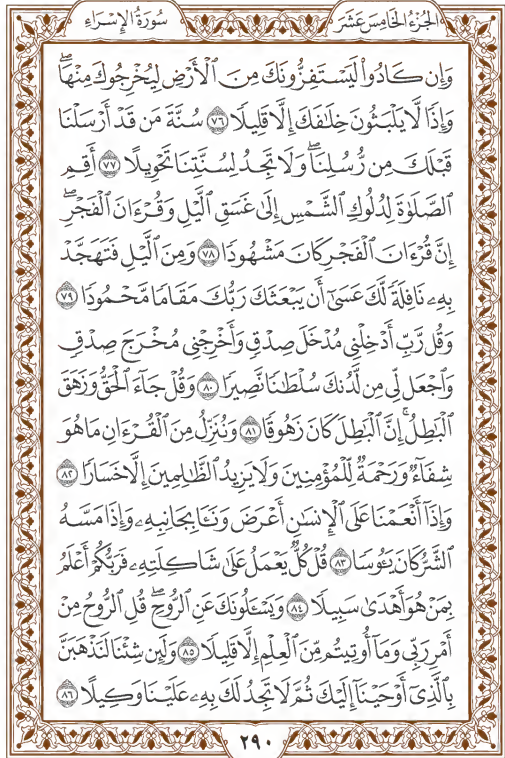 سُورَةُ الإِسْرَاءِ الجُزْءُ الخَامِسَ عَشَرَ
وَإِن كَادُوا۟ لَيَسْتَفِزُّونَكَ مِنَ ٱلْأَرْضِ لِيُخْرِجُوكَ مِنْهَا ۖ
وَإِذًا لَّا يَلْبَثُونَ خِلَـٰفَكَ إِلَّا قَلِيلًا ٧٦ سُنَّةَ مَن قَدْ أَرْسَلْنَا
قَبْلَكَ مِن رُّسُلِنَا ۖ وَلَا تَجِدُ لِسُنَّتِنَا تَحْوِيلًا ٧٧ أَقِمِ
ٱلصَّلَوٰةَ لِدُلُوكِ ٱلشَّمْسِ إِلَىٰ غَسَقِ ٱلَّيْلِ وَقُرْءَانَ ٱلْفَجْرِ ۖ
إِنَّ قُرْءَانَ ٱلْفَجْرِ كَانَ مَشْهُودًا ٧٨ وَمِنَ ٱلَّيْلِ فَتَهَجَّدْ
بِهِۦ نَافِلَةً لَّكَ عَسَىٰٓ أَن يَبْعَثَكَ رَبُّكَ مَقَامًا مَّحْمُودًا ٧٩
وَقُل رَّبِّ أَدْخِلْنِى مُدْخَلَ صِدْقٍ وَأَخْرِجْنِى مُخْرَجَ صِدْقٍ
وَٱجْعَل لِّى مِن لَّدُنكَ سُلْطَـٰنًا نَّصِيرًا ٨٠ وَقُلْ جَآءَ ٱلْحَقُّ وَزَهَقَ
ٱلْبَـٰطِلُ ۚ إِنَّ ٱلْبَـٰطِلَ كَانَ زَهُوقًا ٨١ وَنُنَزِّلُ مِنَ ٱلْقُرْءَانِ مَا هُوَ
شِفَآءٌ وَرَحْمَةٌ لِّلْمُؤْمِنِينَ وَلَا يَزِيدُ ٱلظَّـٰلِمِينَ إِلَّا خَسَارًا ٨٢
وَإِذَآ أَنْعَمْنَا عَلَى ٱلْإِنسَـٰنِ أَعْرَضَ وَنَـَٔا بِجَانِبِهِۦ وَإِذَا مَسَّهُ
ٱلشَّرُّ كَانَ يَـُٔوسًا ٨٣ قُلْ كُلٌّ يَعْمَلُ عَلَىٰ شَاكِلَتِهِۦ فَرَبُّكُمْ أَعْلَمُ
بِمَنْ هُوَ أَهْدَىٰ سَبِيلًا ٨٤ وَيَسْـَٔلُونَكَ عَنِ ٱلرُّوحِ ۖ قُلِ ٱلرُّوحُ مِنْ
أَمْرِ رَبِّى وَمَآ أُوتِيتُم مِّنَ ٱلْعِلْمِ إِلَّا قَلِيلًا ٨٥ وَلَئِن شِئْنَا لَنَذْهَبَنَّ
بِٱلَّذِىٓ أَوْحَيْنَآ إِلَيْكَ ثُمَّ لَا تَجِدُ لَكَ بِهِۦ عَلَيْنَا وَكِيلًا ٨٦
٢٩٠